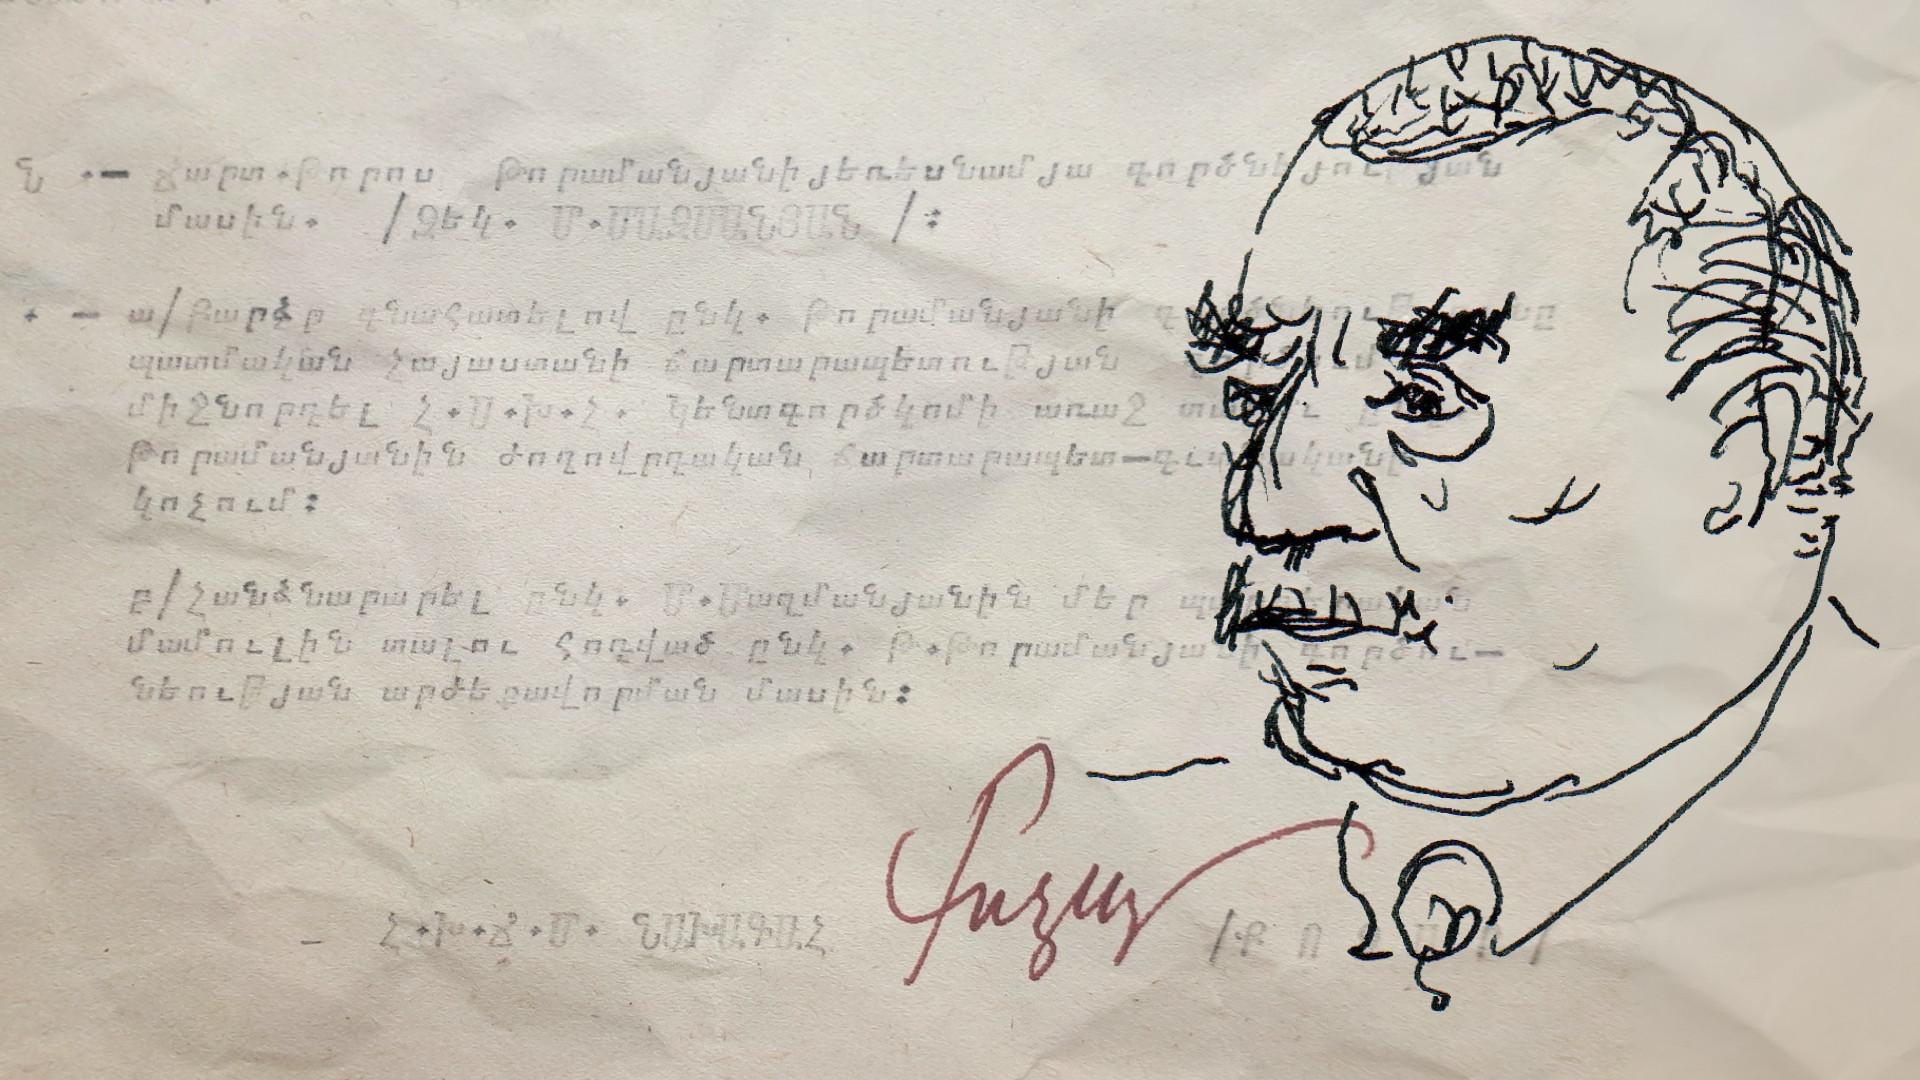 Ն .— ճարտ.Թորոս Թորամանյանի յեռեսնամյա գործնեյության
մասին. /Զեկ. Մ.ՄԱԶՄԱՆՅԱՆ /:
. — ա/ Բարձր գնահատելով ընկ. Թորամանյանի
պատմական Հայաստանի ճարտարապետության
միջնորդել Հ.Ս.Խ.Հ. Կենտգործկոմի առաջ տալու
Թորամանյանին ժողովրդական ճարտարապետ—գիտնականի
կոչում:
բ/Հանձնարարել ընկ. Մ.Մազմանյանին մեր պարբերական
մամուլին տալու հոդված ընկ. Թ.Թորամանյանի գործու—
նեության արժեքավորման մասին:
— Հ.Խ.Ճ.Մ. ՆԱԽԱԳԱՀ